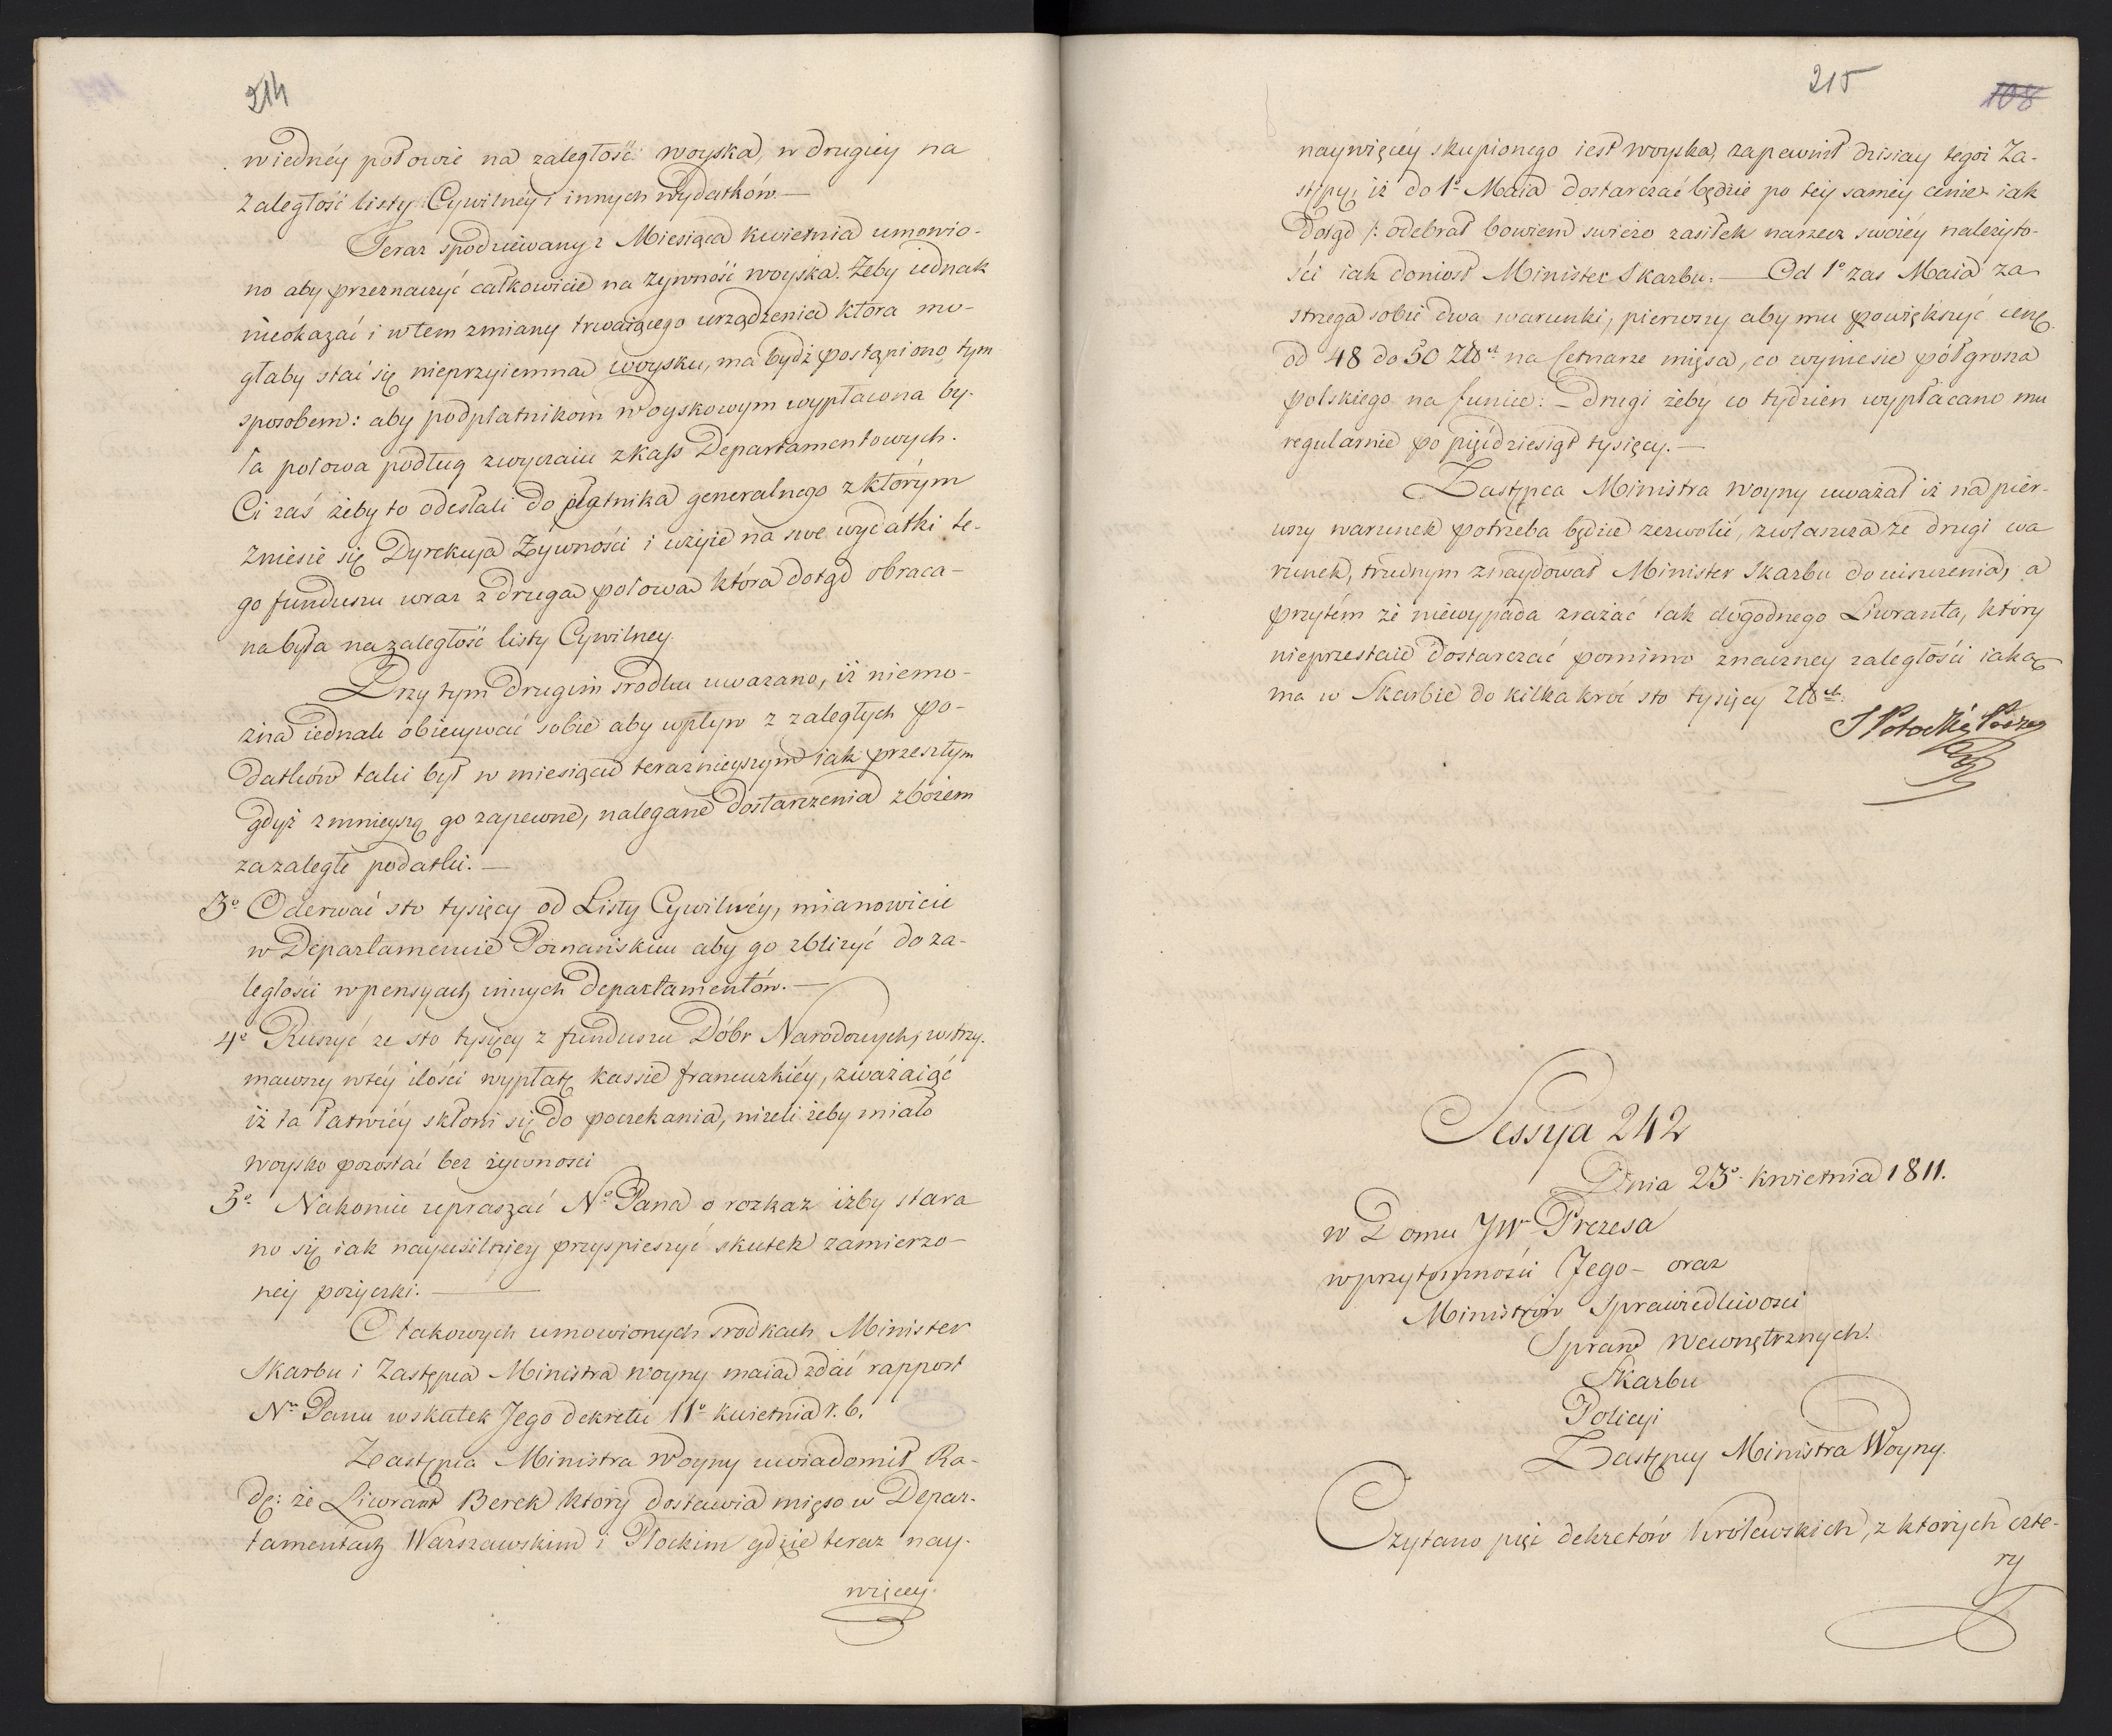 214
wiednéy połowie na zaległość woyska, w drugiey na
zaległość listy Cywilnéy i innych wydatków.—
Teraz spodziewany z Miesiąca kwietnia umowio-
no aby przeznaczyć całkowicie na żywność woyska. Żeby iednak
nieokazać i wtem zmiany trwaiącego urządzenia która mo-
głaby stać się nieprzyiemna woysku, ma bydź postąpiono tym
sposobem: aby podpłatnikom woyskowym wypłacona by-
ła połowa podług zwyczaiu zkass Departamentowych.
Ci zaś żeby to odesłali do płatnika generalnego z którym
zniesie się Dyrekcya Żywności i użyie na swe wydatki te-
go funduszu wraz z drugą połową która dotąd obraca-
na była na zaległość listy Cywilney.
Przy tym drugim srodku uwazano, iż niemo-
żna iednak obiecywać sobie aby wpływ z zaległych po-
datków taki był w miesiącu teraznieyszym iak przeszłym
gdyż zmnieyszą go zapewne, nalegane dostarczenia zbożem
za zaległe podatki.—
3º Oderwać sto tysięcy od Listy Cywilnéy, mianowicie
w Departamencie Poznańskim aby go zbliżyć do za-
ległości wpensyach innych Departamentów.—
4º Ruszyć ze sto tysięcy z funduszu Dóbr Narodowych, wstrzy-
mawszy wtéy ilości wypłatę kassie francuzkiéy, zważaiąć
iż ta łatwiéy skłoni się do poczekania, niżeli żeby miało
woysko pozostać bez żywnosci
5º Nakoniec upraszać Nº Pana o rozkaz iżby stara
no się iak nayusilniey przyspieszyć skutek zamierzo-
ney pożyczki.—
O takowych umowionych srodkach Minister
Skarbu i Zastępca Ministra Woyny maią zdać rapport
Nu Panu wskutek Jego dekretu 11º kwietnia r. b.
Zastępca Ministra Woyny uwiadomił Ra-
dę: że Liwrant Berek który dostawia mięso w Depar-
tamentach Warszawskim i Płockim gdzie teraz nay-
więcey.
215
108
naywięcéy skupionego iest woyska, zapewnił dzisiay tegoż Za-
stępcę iż do 1º Maia dostarczać będzie po téy saméy cenie iak
dotąd /: odebrał bowiem swieżo zasiłek narzecz swoiéy należyto-
ści iak doniosł Minister Skarbu:— Od 1º zas Maia za
strzega sobie dwa warunki, pierwszy aby mu powiększyć cenę
od 48 do 50 Złotch na Cetnarze mięsa, co wyniesie półgrosza
polskiego na funcie:— drugi żeby co tydzien wypłacano mu
regularnie po pięćdziesiąt tysięcy.—
Zastępca Ministra Woyny uważał iż na pier-
wszy warunek potrzeba będzie zezwolić, zwłaszcza że drugi wa
runek, trudnym znaydował Minister Skarbu do uiszczenia, a
przytém że niewypada zrażać tak dogodnego Liwranta, który
nieprzestaie dostarczać pomimo znaczney zaległości iaką
ma w Skarbie do kilka kroć sto tysięcy Złotch.
S Potocki Prezes
Sessya 242
Dnia 23º kwietnia 1811.
w Domu JW Prezesa
wprzytomności Jego — oraz
Ministrów Sprawiedliwosci
Spraw Wewnętrznych.
Skarbu
Policyi
Zastępcy Ministra Woyny.
Czytano pięć dekretów Królewskich, z których czte-
ry